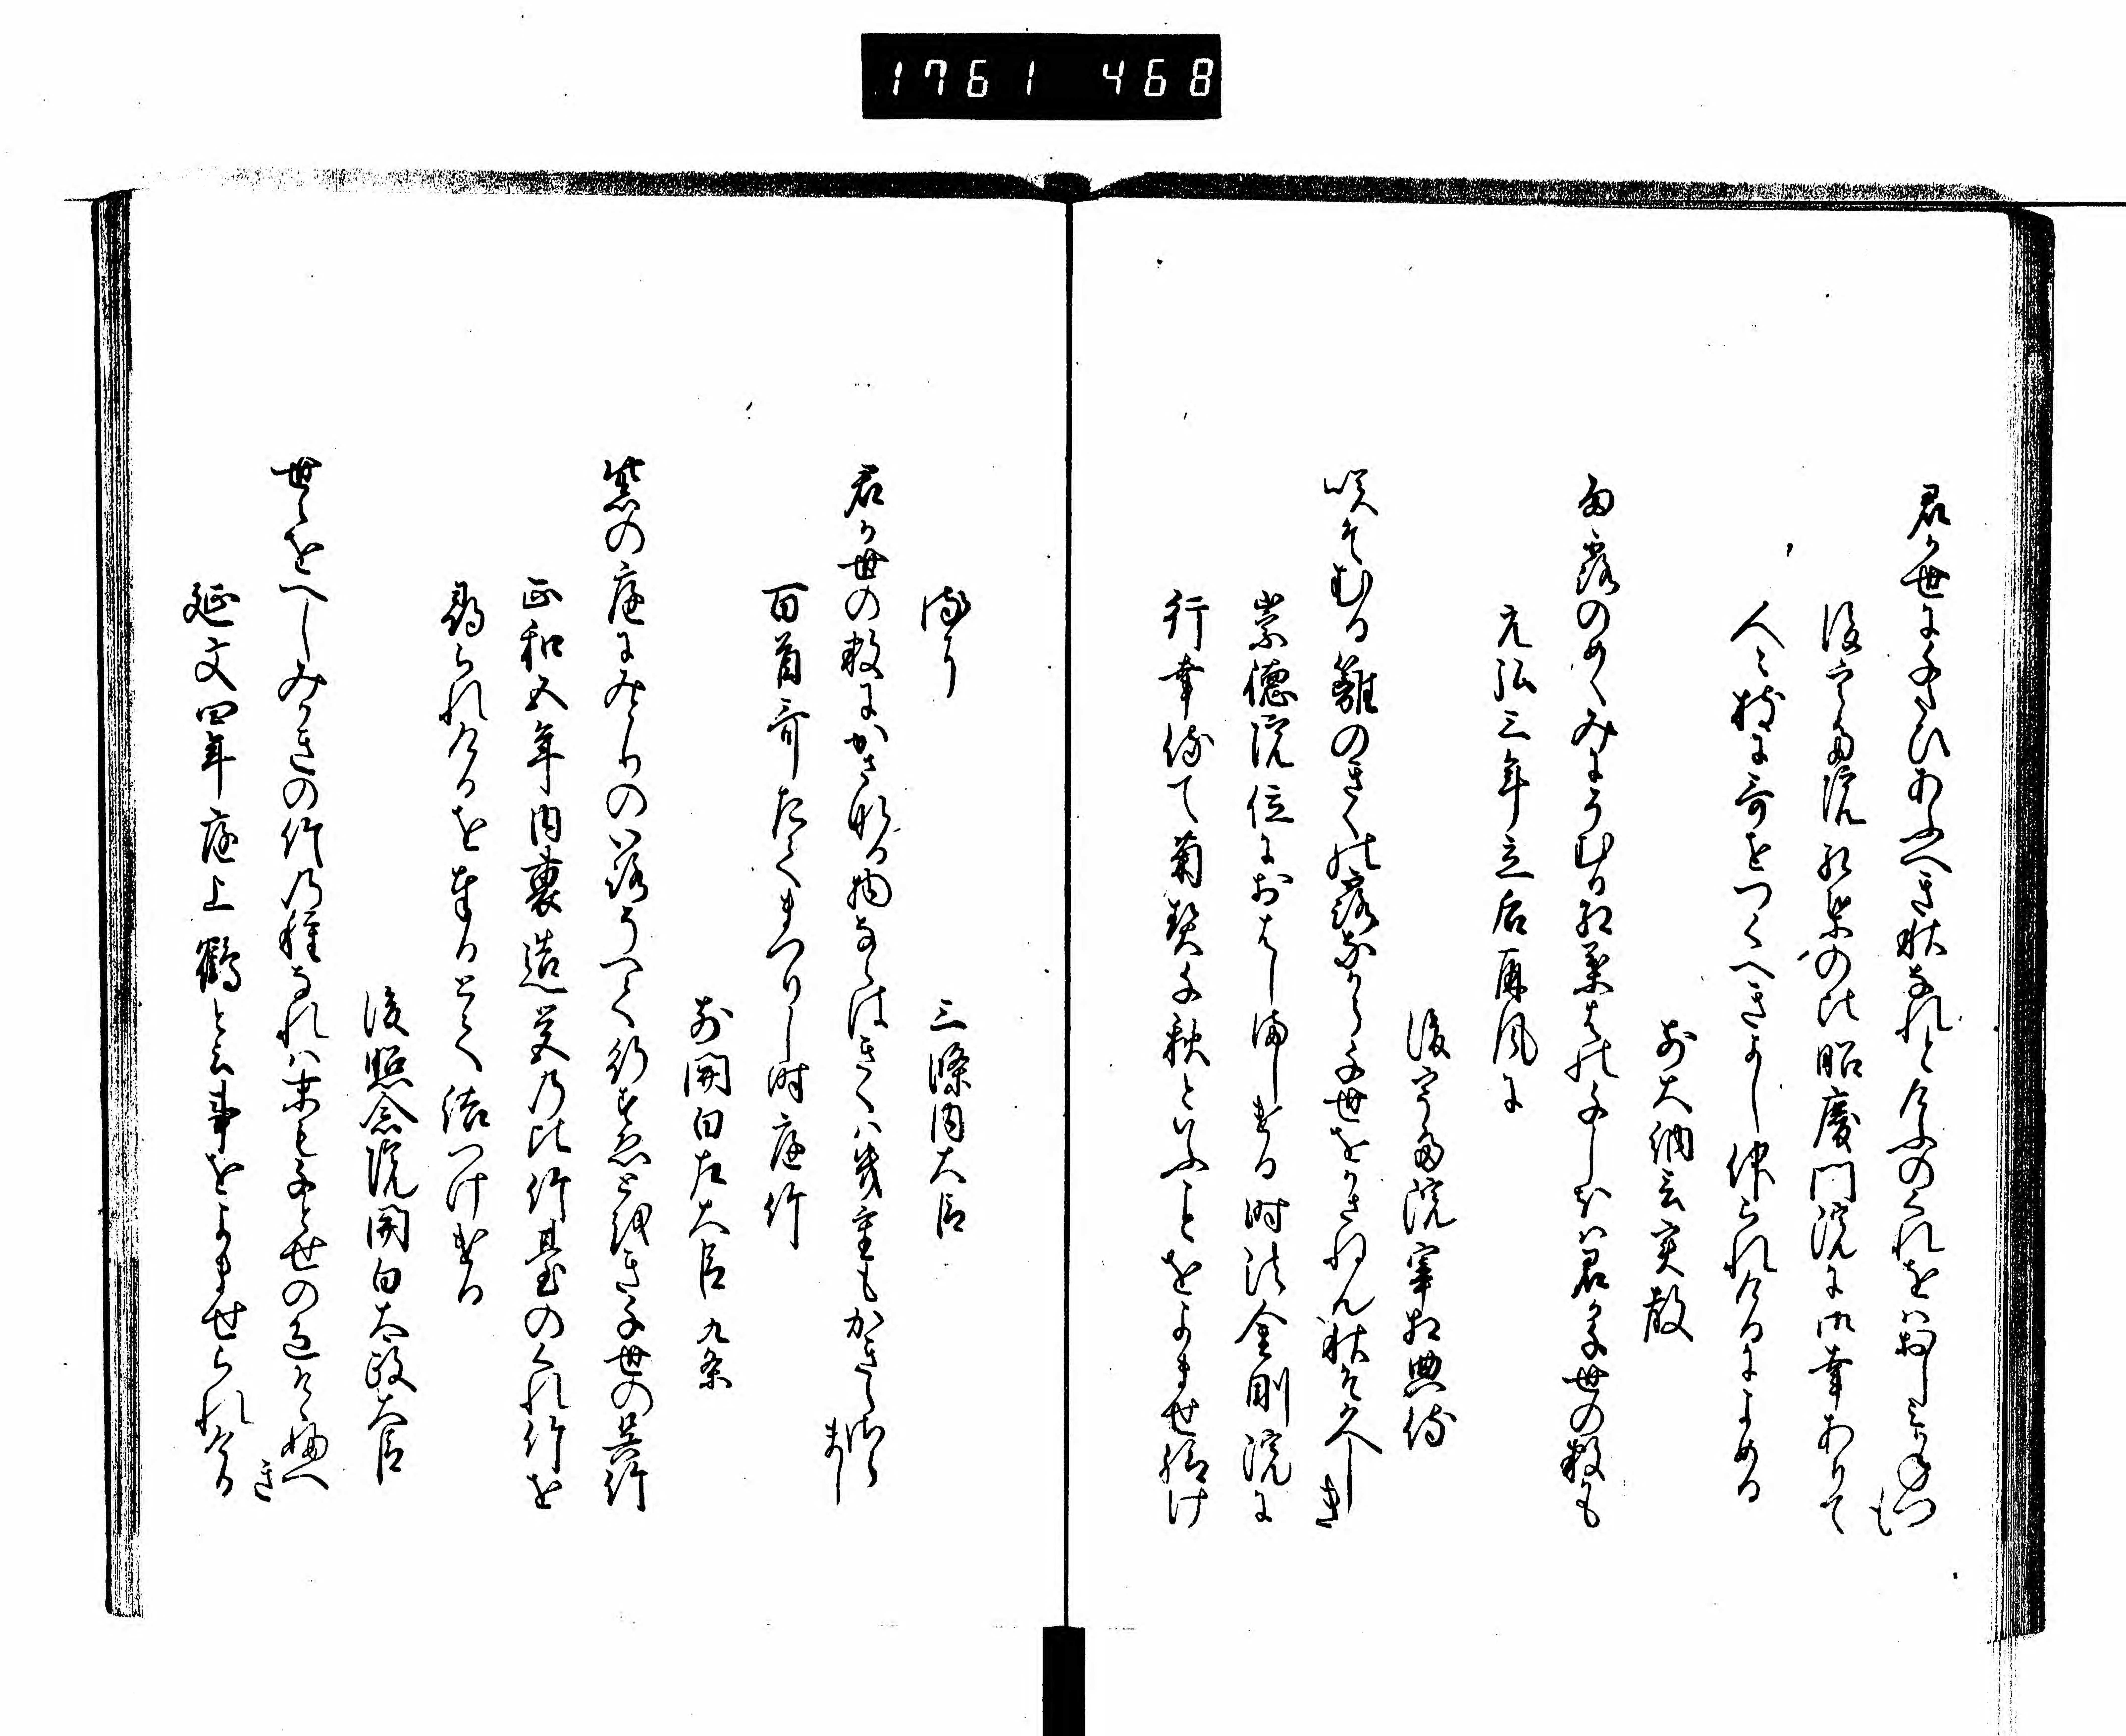 1761 468
君か世に千たひあふへき秋なれとけふのくれをはおしみかねつも
後宇多院紅葉の比昭慶門院に御幸ありて
人々枝に哥をつくへきよし仰られけるによめる
前大納言実教
雨露のめくみにそむる紅葉はの千しほは君か千世の数も
元弘三年立后屏風に
後宇多院宰相典侍
咲そむる籬のきくの露なから千世をかさねん秋そ久しき
崇徳院位におはしましける時法金剛院に
行幸侍て菊契千秋といふことをよませ給け
るに
三條内大臣
君か世の数にかさぬる物ならはきくは幾重もかきらさらまし
百首哥たてまつりし時庭竹
前関白左大臣 九条
紫の庭にみとりの色うつる行すゑとをき千世の呉竹
正和五年内裏造営の比竹臺のくれ竹を
尋られけるを奉るとて結つけける
後照念院関白太政大臣
世々をへしみかきの竹の種なれは末も千とせの色そ添へき
延文四年庭上鶴と云事をよませられける